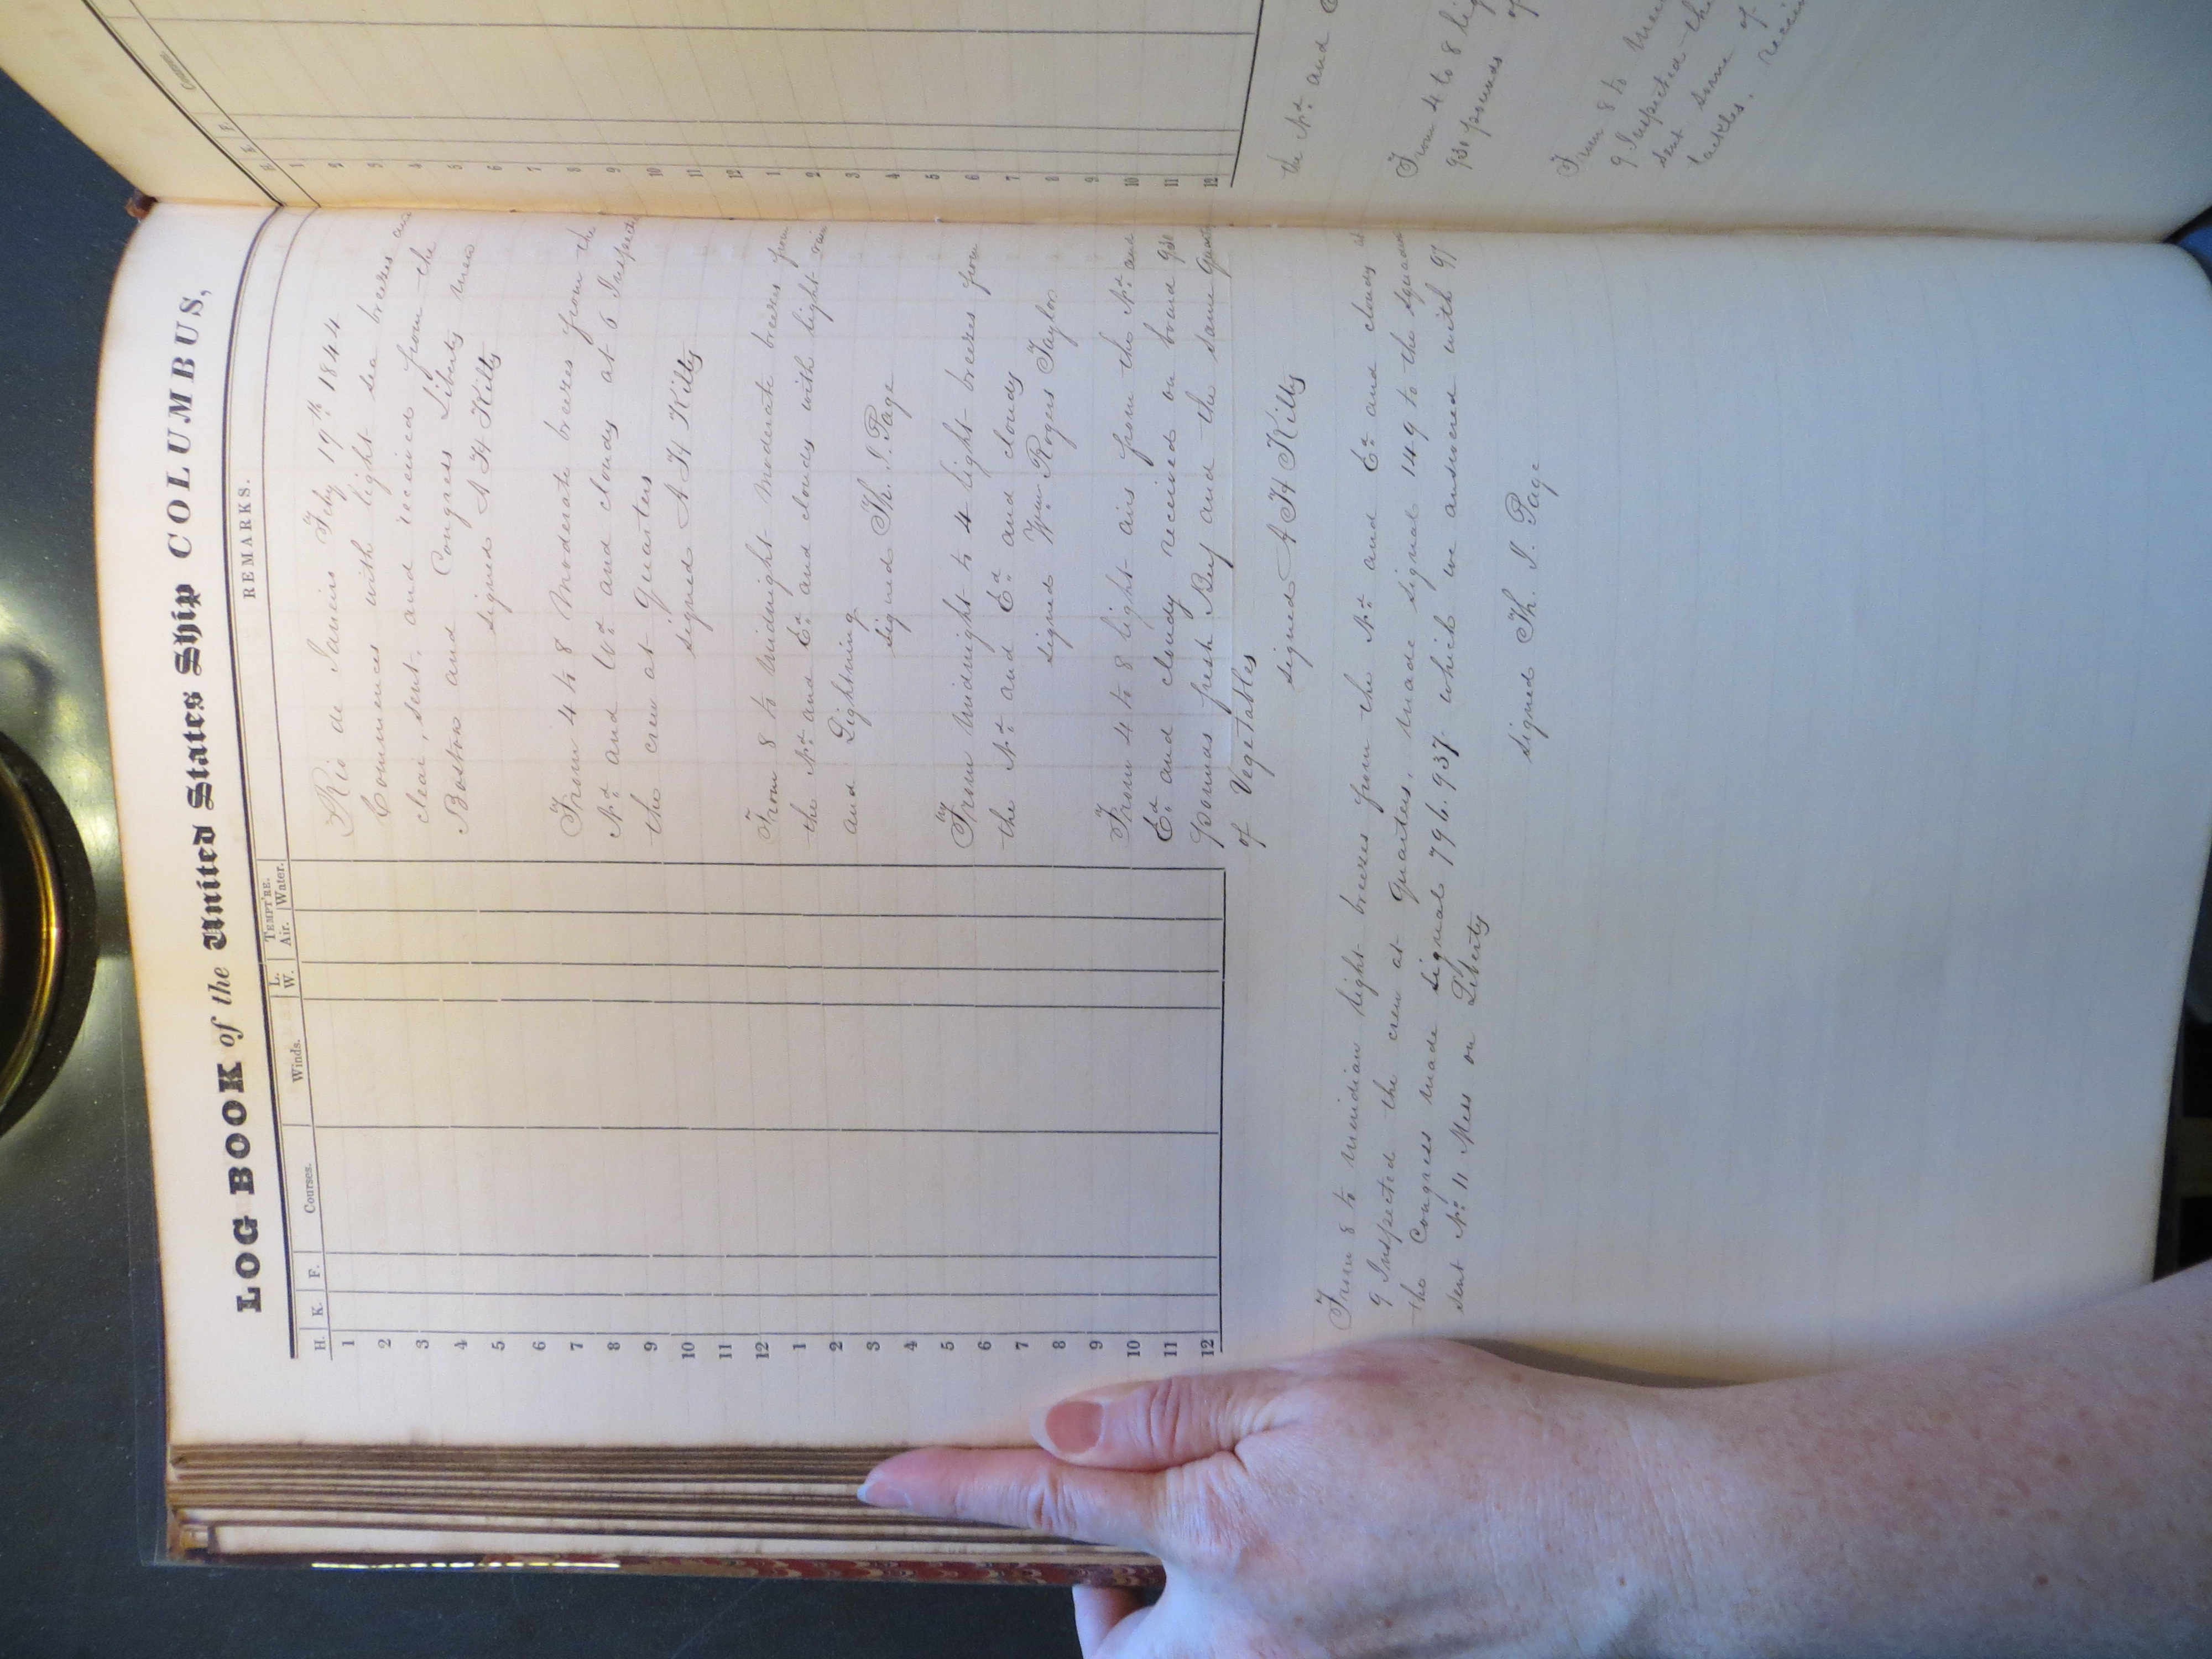 LOG BOOK of the United States Ship COLUMBUS,
H. K. F. Courses. Winds. L. W. TEMPT'RE. Air. Water. REMARKS.
1
2
3
4
5
6
7
8
9
10
11
12
1
2
3
4
5
6
7
8
9
10
11
12
Rio de Janeiro Feby 19th 1844
Commences with light sea breezes and
clear, sent, and received from the
Boston and Congress Liberty men
signed A H Kilty
From 4 to 8 Moderate breezes from the
Nd and Wd and cloudy at 6 Inspected
the crew at Quarters
signed A H Kilty
From 8 to Midnight Moderate breezes from
the Nd and Ed and cloudy with light rain
and Lightning
signed Th. J. Page
From Midnight to 4 light breezes from
the Nd and Ed and cloudy
signed Wm Rogers Taylor
From 4 to 8 light airs from the Nd and
Ed and cloudy received on board 930
pounds fresh Beef and the same quantity
of Vegetables
signed A H Kilty
From 8 to Meridian light breezes from the Nd and Ed and cloudy at
9 Inspected the crew at Quarters, made signal 149 to the squadron
the Congress made signal 796. 937 which we answered with 97
sent No 11 Mess on Liberty
signed Th. J. Page
H. K. F. Courses
1
2
3
4
5
6
7
8
9
10
11
12
1
2
3
4
5
6
7
8
9
10
11
12
the Nd and
From 4 to 8
930 pounds of
From 8 to
9 Inspected the
sent some of
tackles,